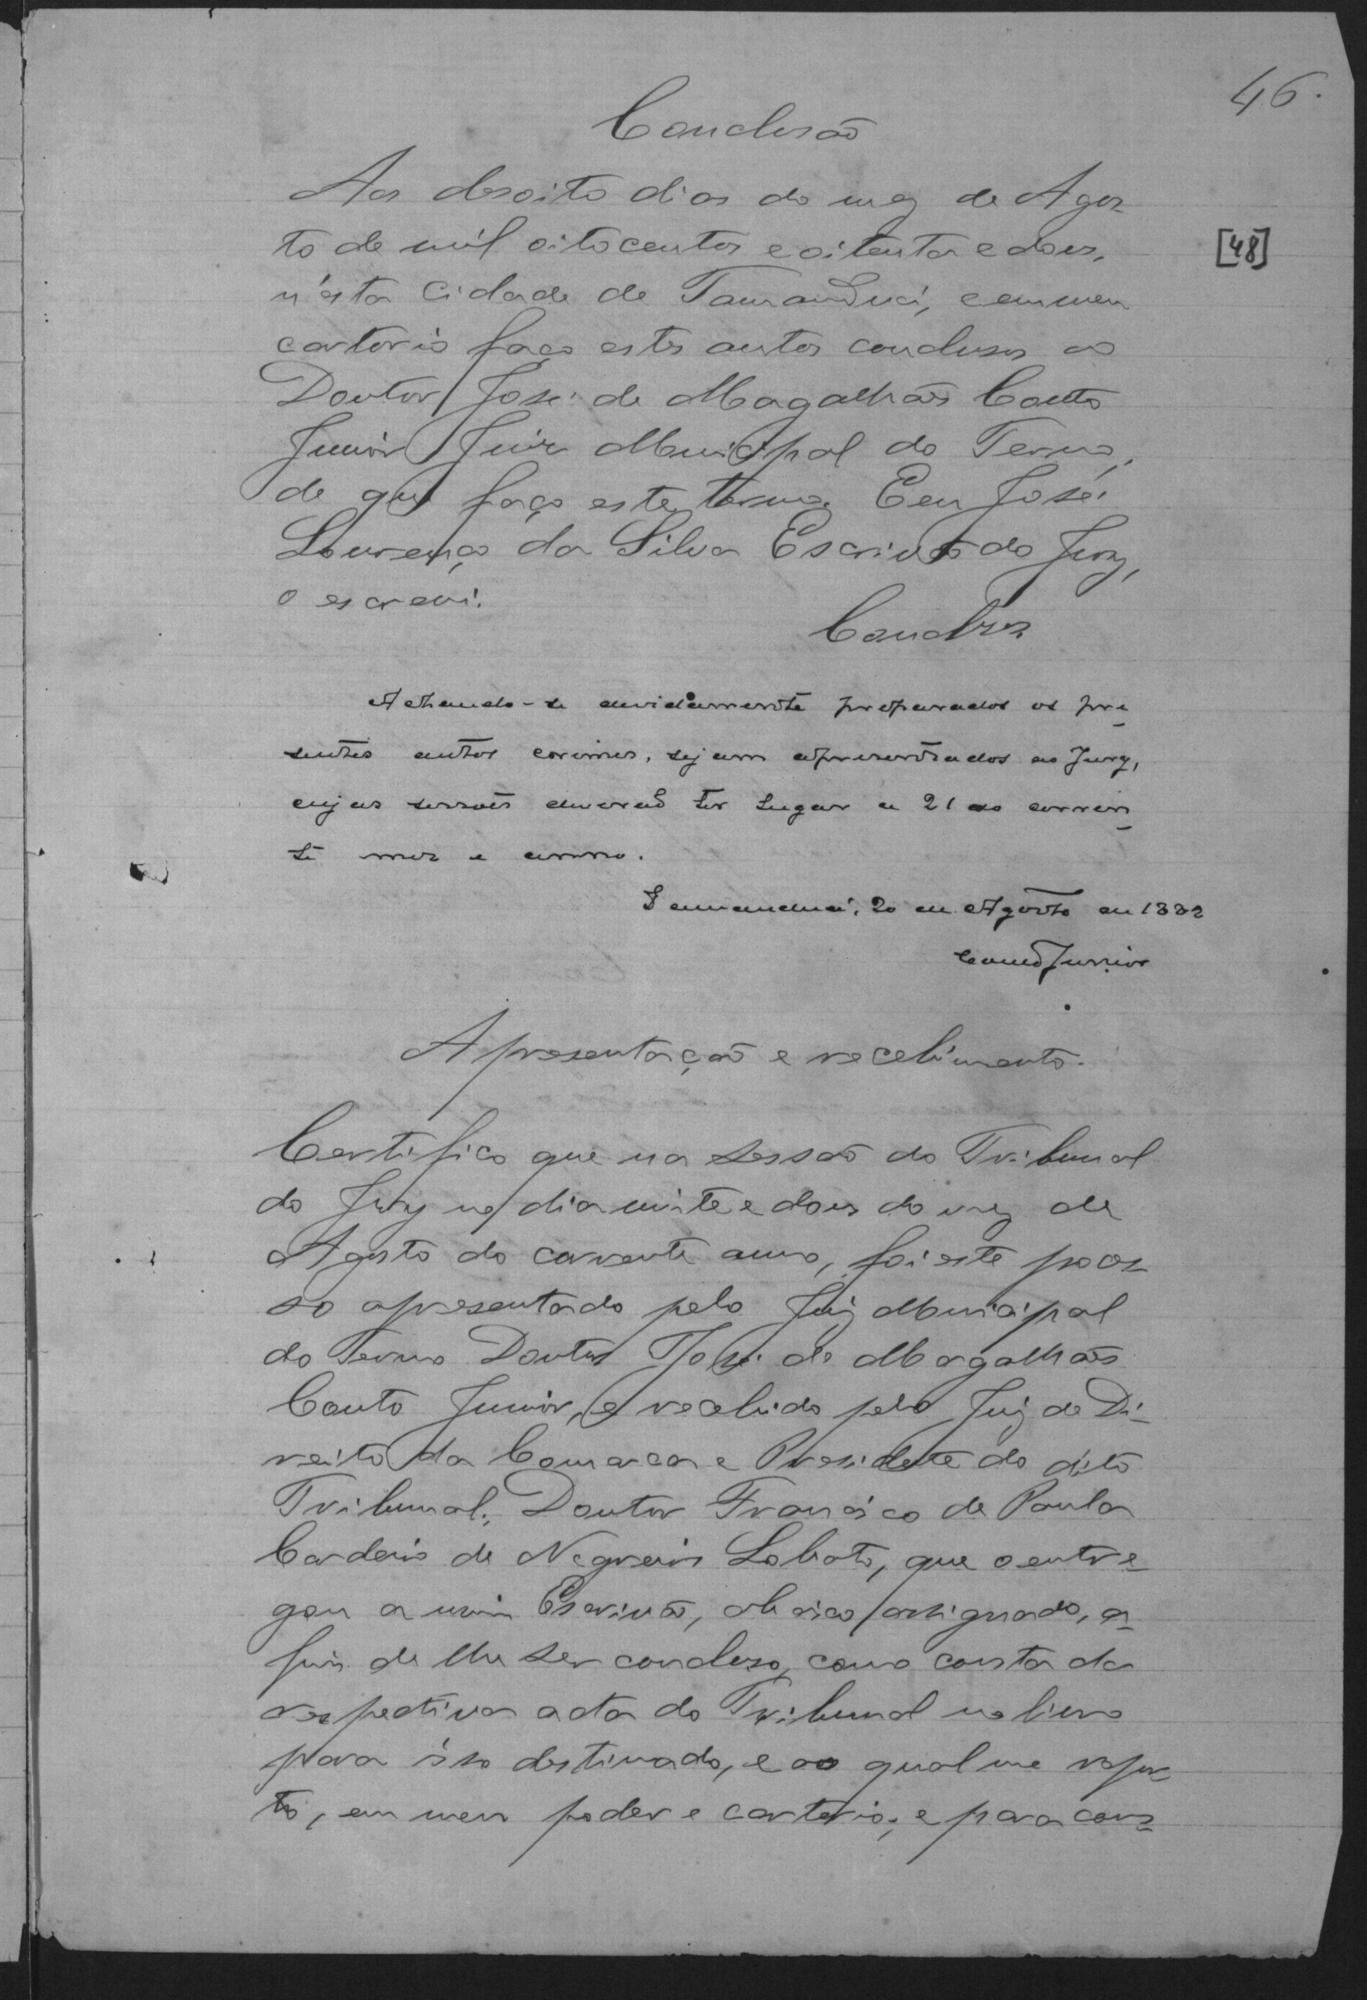 46.
Conclusão
Aos desoito dias do mez de Agos-
to de mil oitocentos e oitenta e dous,
n'esta Cidade de Tamanduá, em meu
cartorio faço estes autos conclusos ao
Doutor José de Magalhães Couto
Junior Juiz Municipal do Termo,
de que faço este termo. Eeu José
Lourenço da Silva Escrivão do Jury,
o escrevi.
[48]
Conclsos
Achando-se devidamente preparados os pre-
sentes autos crimes, sejam apresentados ao Jury,
cujas sessões deverão ter lugar a 21 do corren-
te mez e anno.
Tamanduá, 20 de Agosto de 1882
Couto Junior
Apresentação e recebimento.
Certifico que na sessão do Tribunal
do Jury no dia vinte e dous do mez de
Agosto do corrente anno, foi este proces-
so apresentado pelo Juiz Municipal
do Termo Doutor José de Magalhães
Couto Junior, e recebido pelo Juiz de Di-
reito da Comarca e Presidente do dito
Tribunal, Doutor Francisco de Paula
Cordeiro de Negreiros Lobato, que o entre-
gou a mim Escrivão, abaixo assignado, a-
fim de lhe ser concluso, como consta da
respectiva acta do Tribunal no livro
para isso destinado, e ao qual me repor-
to, em meu poder e cartorio; e para cons-